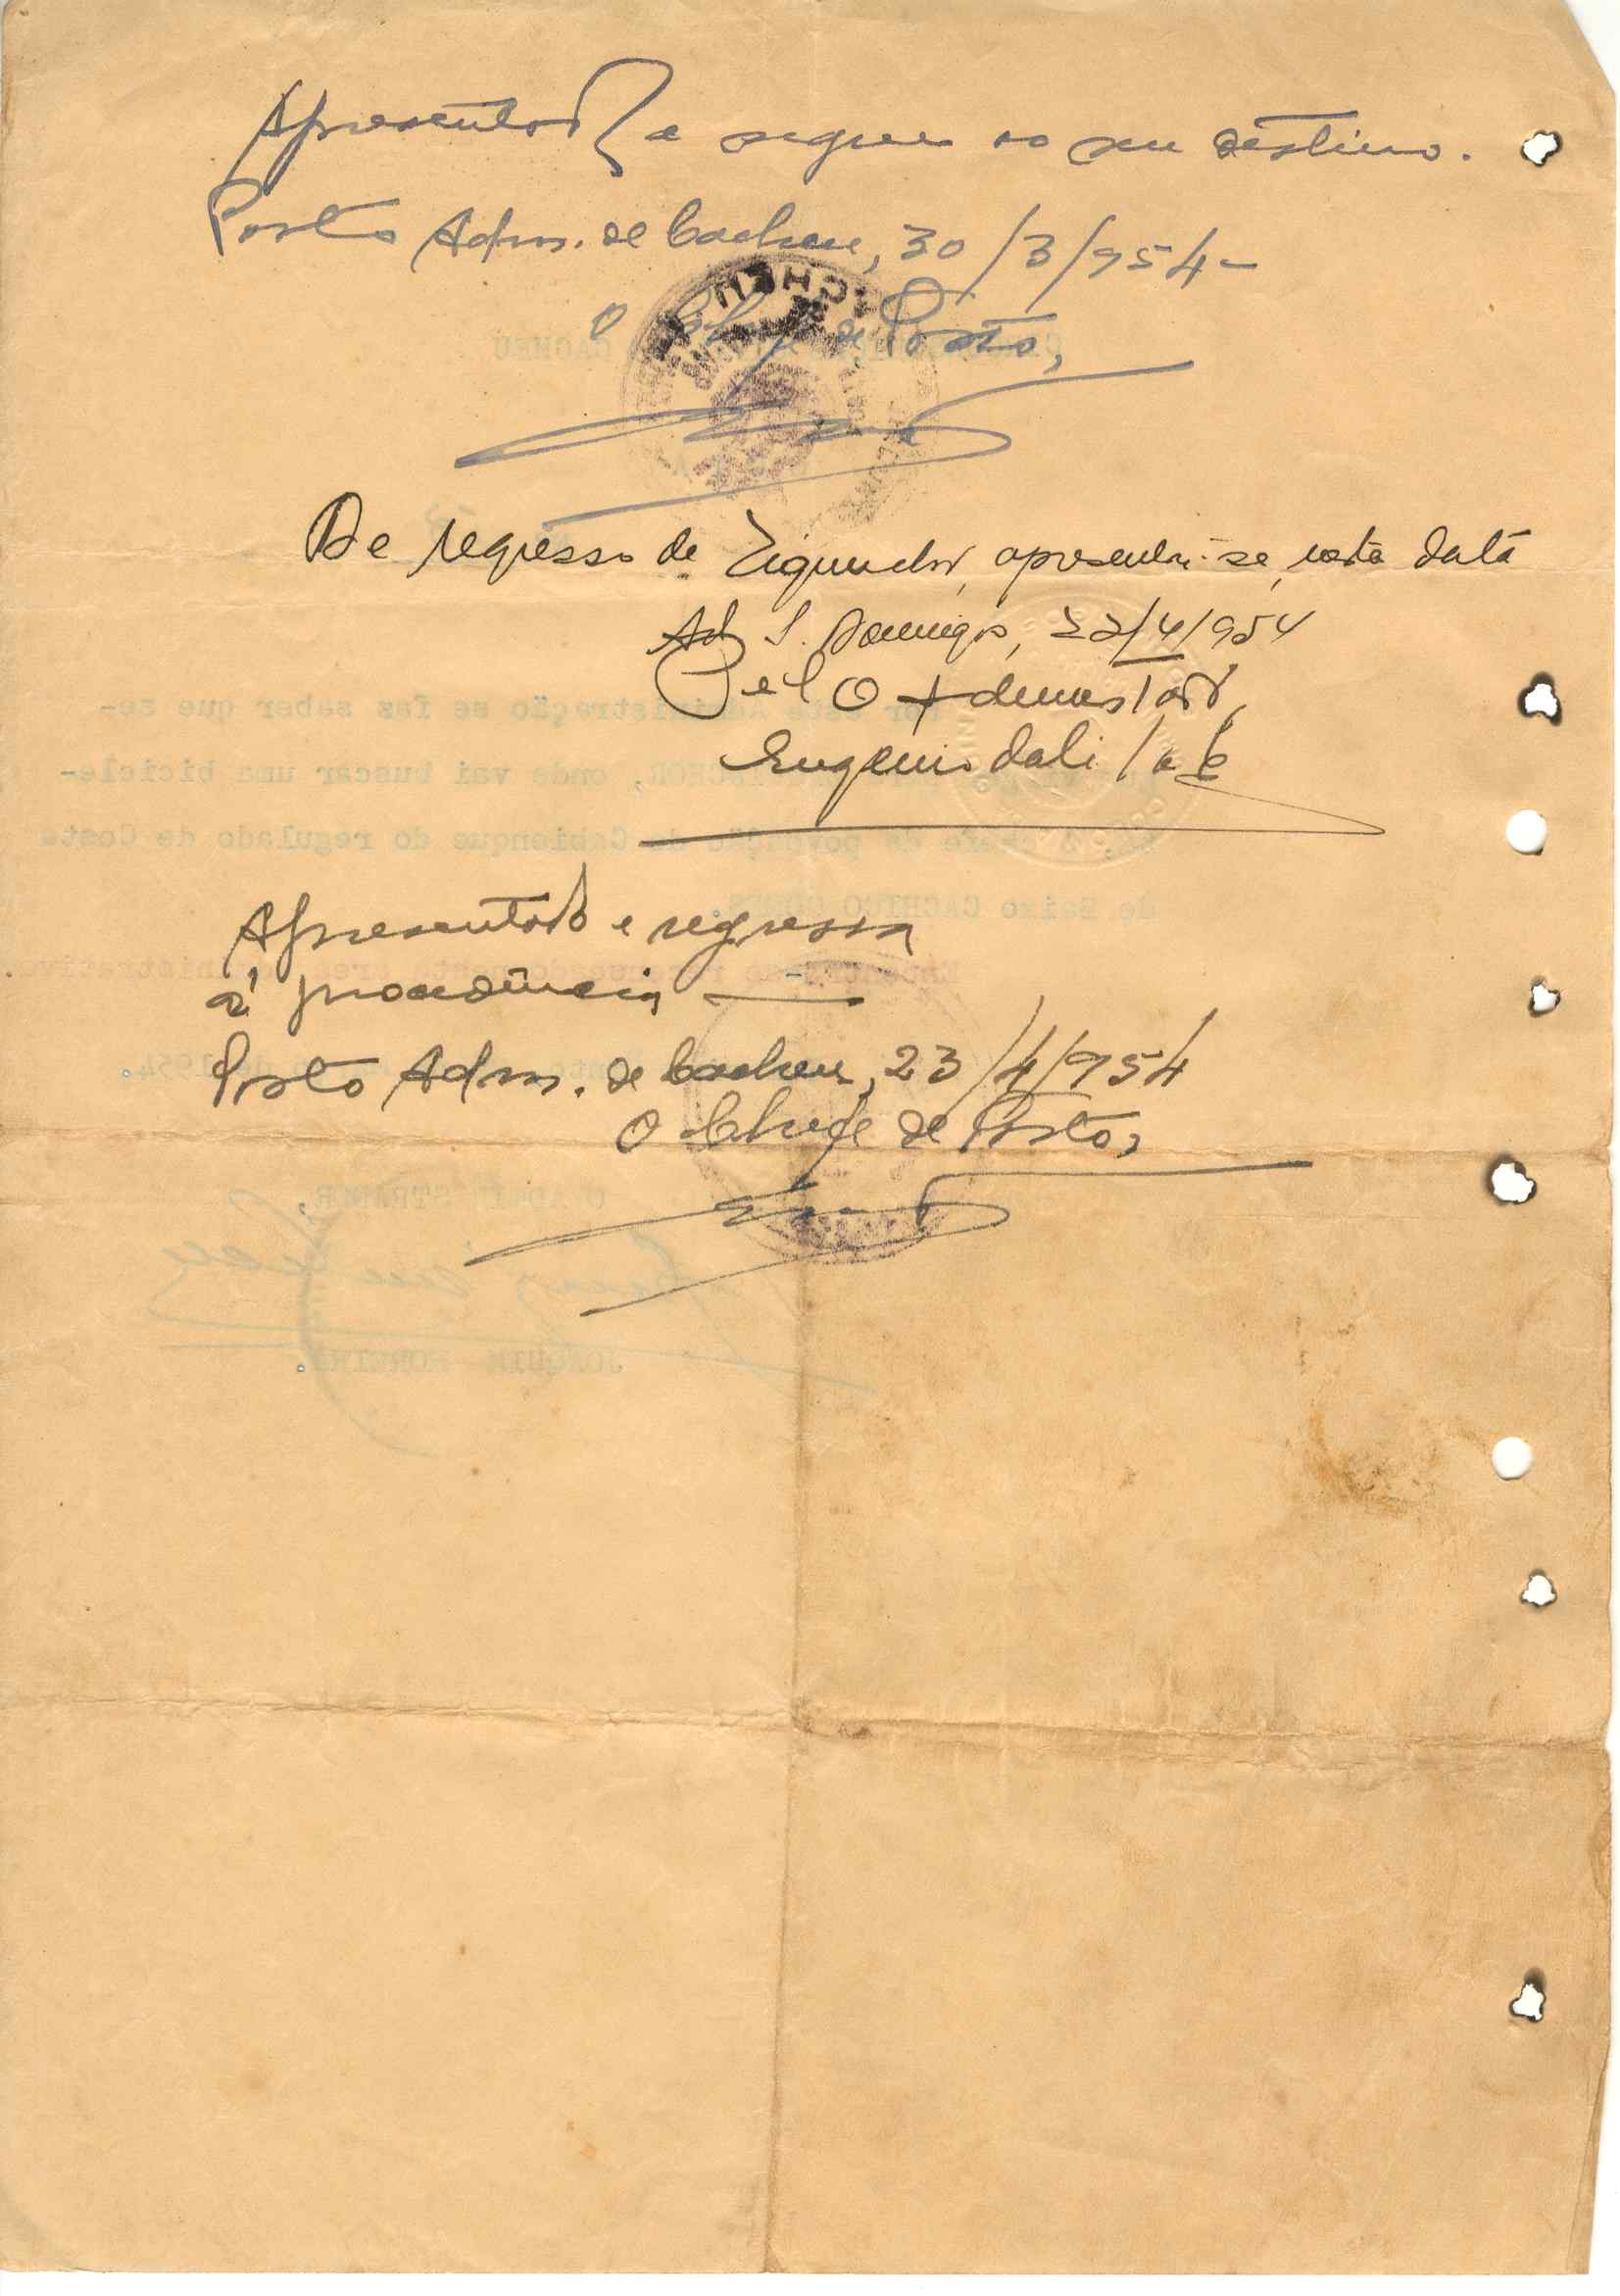 Apresentado e segue ao seu destino.
Posto Adm. de Cacheu, 30/3/954-
O Chefe de Posto,
CACHEU
De regresso de Ziguinchor, apresentou-se, nesta data
Ad S. Domingos, 22/4/954
Pel O Administador,
Eugenio
Apresentado e regressa
á procedência
Posto Adm. de Cacheu, 23/4/954
O Chefe de Posto,